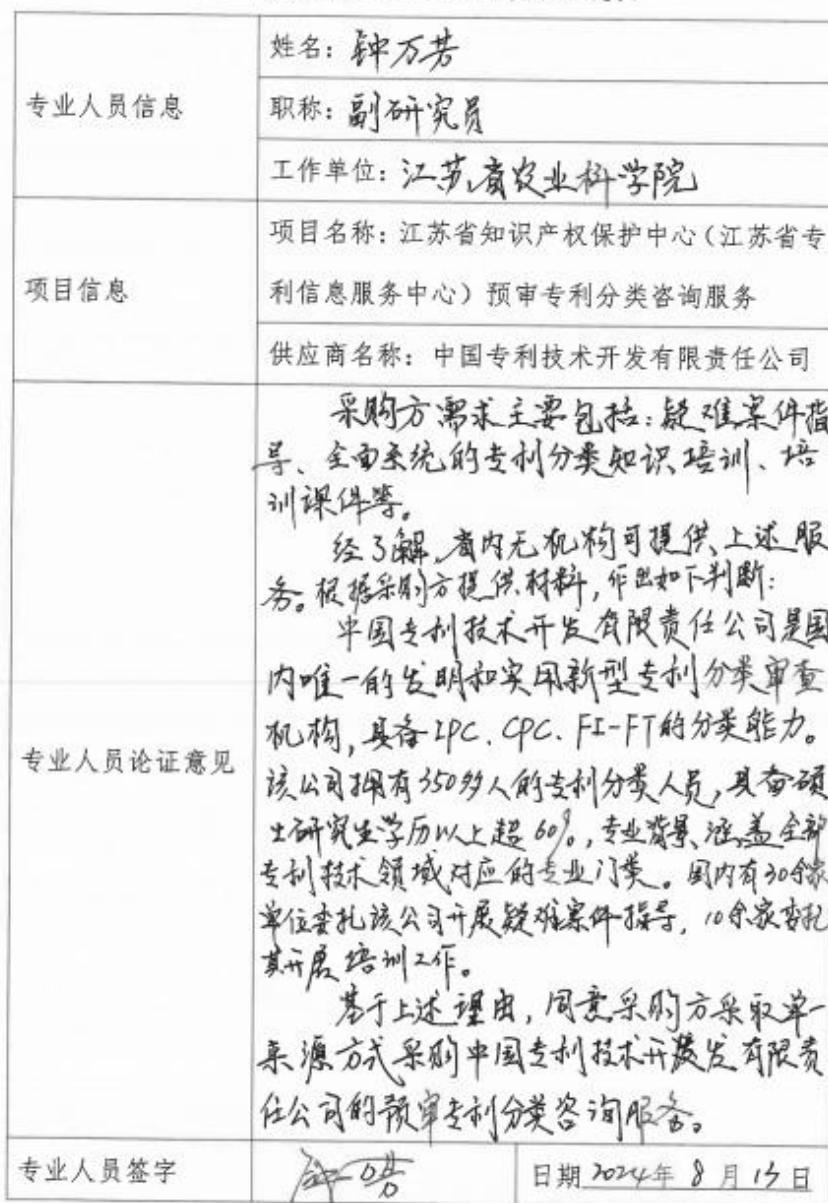 专业人员信息
姓名：钟万芳
职称：副研究员
工作单位：江苏省农业科学院
项目信息
项目名称：江苏省知识产权保护中心（江苏省专
利信息服务中心）预审专利分类咨询服务
供应商名称：中国专利技术开发有限责任公司
专业人员论证意见
采购方需求主要包括：疑难案件指
导、全面系统的专利分类知识培训、培
训课件等。
经了解，省内无机构可提供上述服
务。根据采购方提供材料，作出如下判断：
中国专利技术开发有限责任公司是国
内唯一的发明和实用新型专利分类审查
机构，具备IPC、CPC、FI-FT的分类能力。
该公司拥有350多人的专利分类人员，具备硕
士研究生学历以上超60%，专业背景涵盖全部
专利技术领域对应的专业门类。国内有30余家
单位委托该公司开展疑难案件指导，10余家委托
其开展培训工作。
基于上述理由，同意采购方采取单一
来源方式采购中国专利技术开发有限责
任公司的预审专利分类咨询服务。
专业人员签字
日期 2024年 8 月 15 日